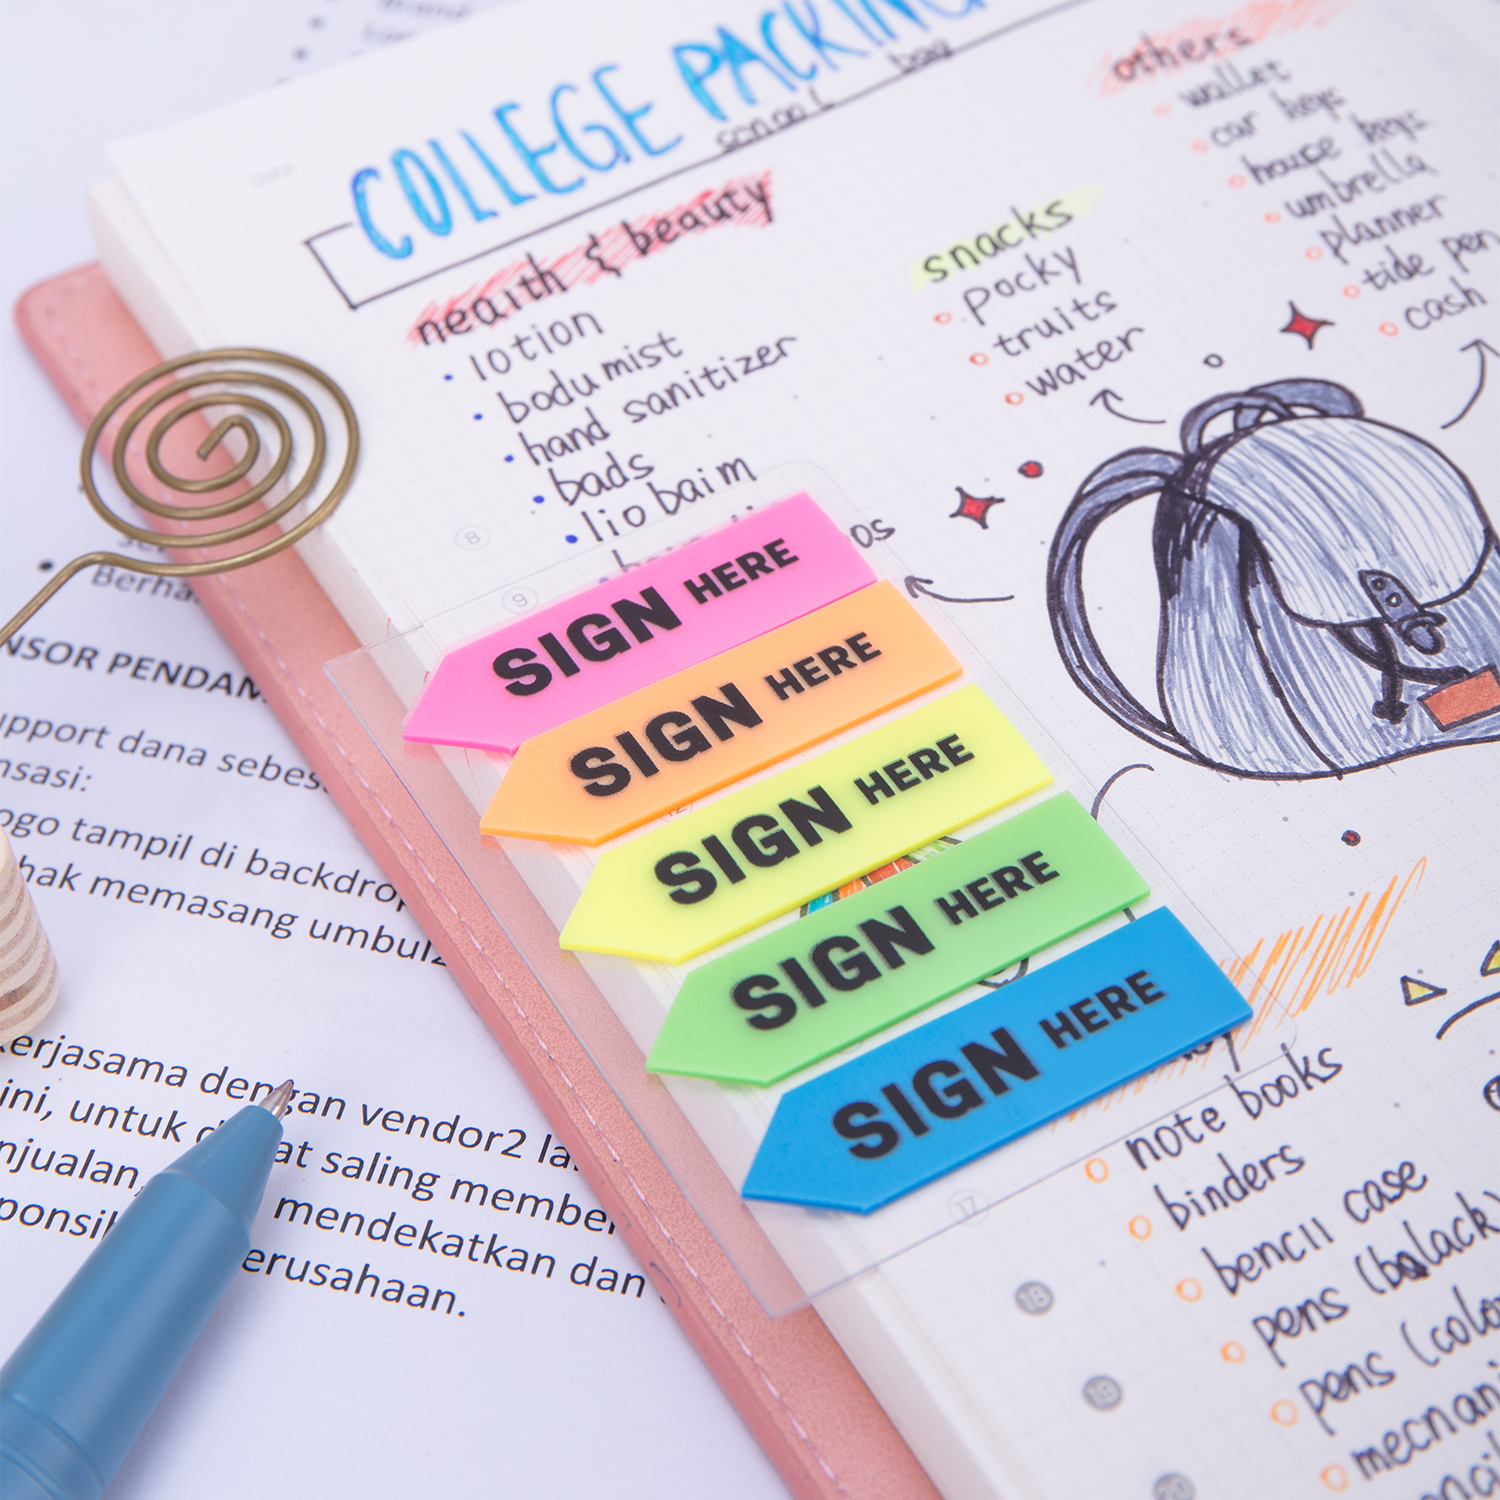 COLLEGE PACKING
school
bag
neaith & beauty
• lotion
• bodu mist
• hand sanitizer
• bads
• lio baim
snacks
pocky
truits
water
others
wallet
car keys
house keys
umbrella
planner
tide pen
cash
8
9
SIGN HERE
SIGN HERE
12
SIGN HERE
SIGN HERE
SIGN HERE
17
18
19
20
note books
binders
bencil case
pens (balack)
pens (colo
mecnani
• Berha
NSOR PENDAM
upport dana sebes
nsasi:
ogo tampil di backdrop
hak memasang umbul2
kerjasama dengan vendor2 la
ini, untuk d at saling member
njualan,
ponsib mendekatkan dan
erusahaan.